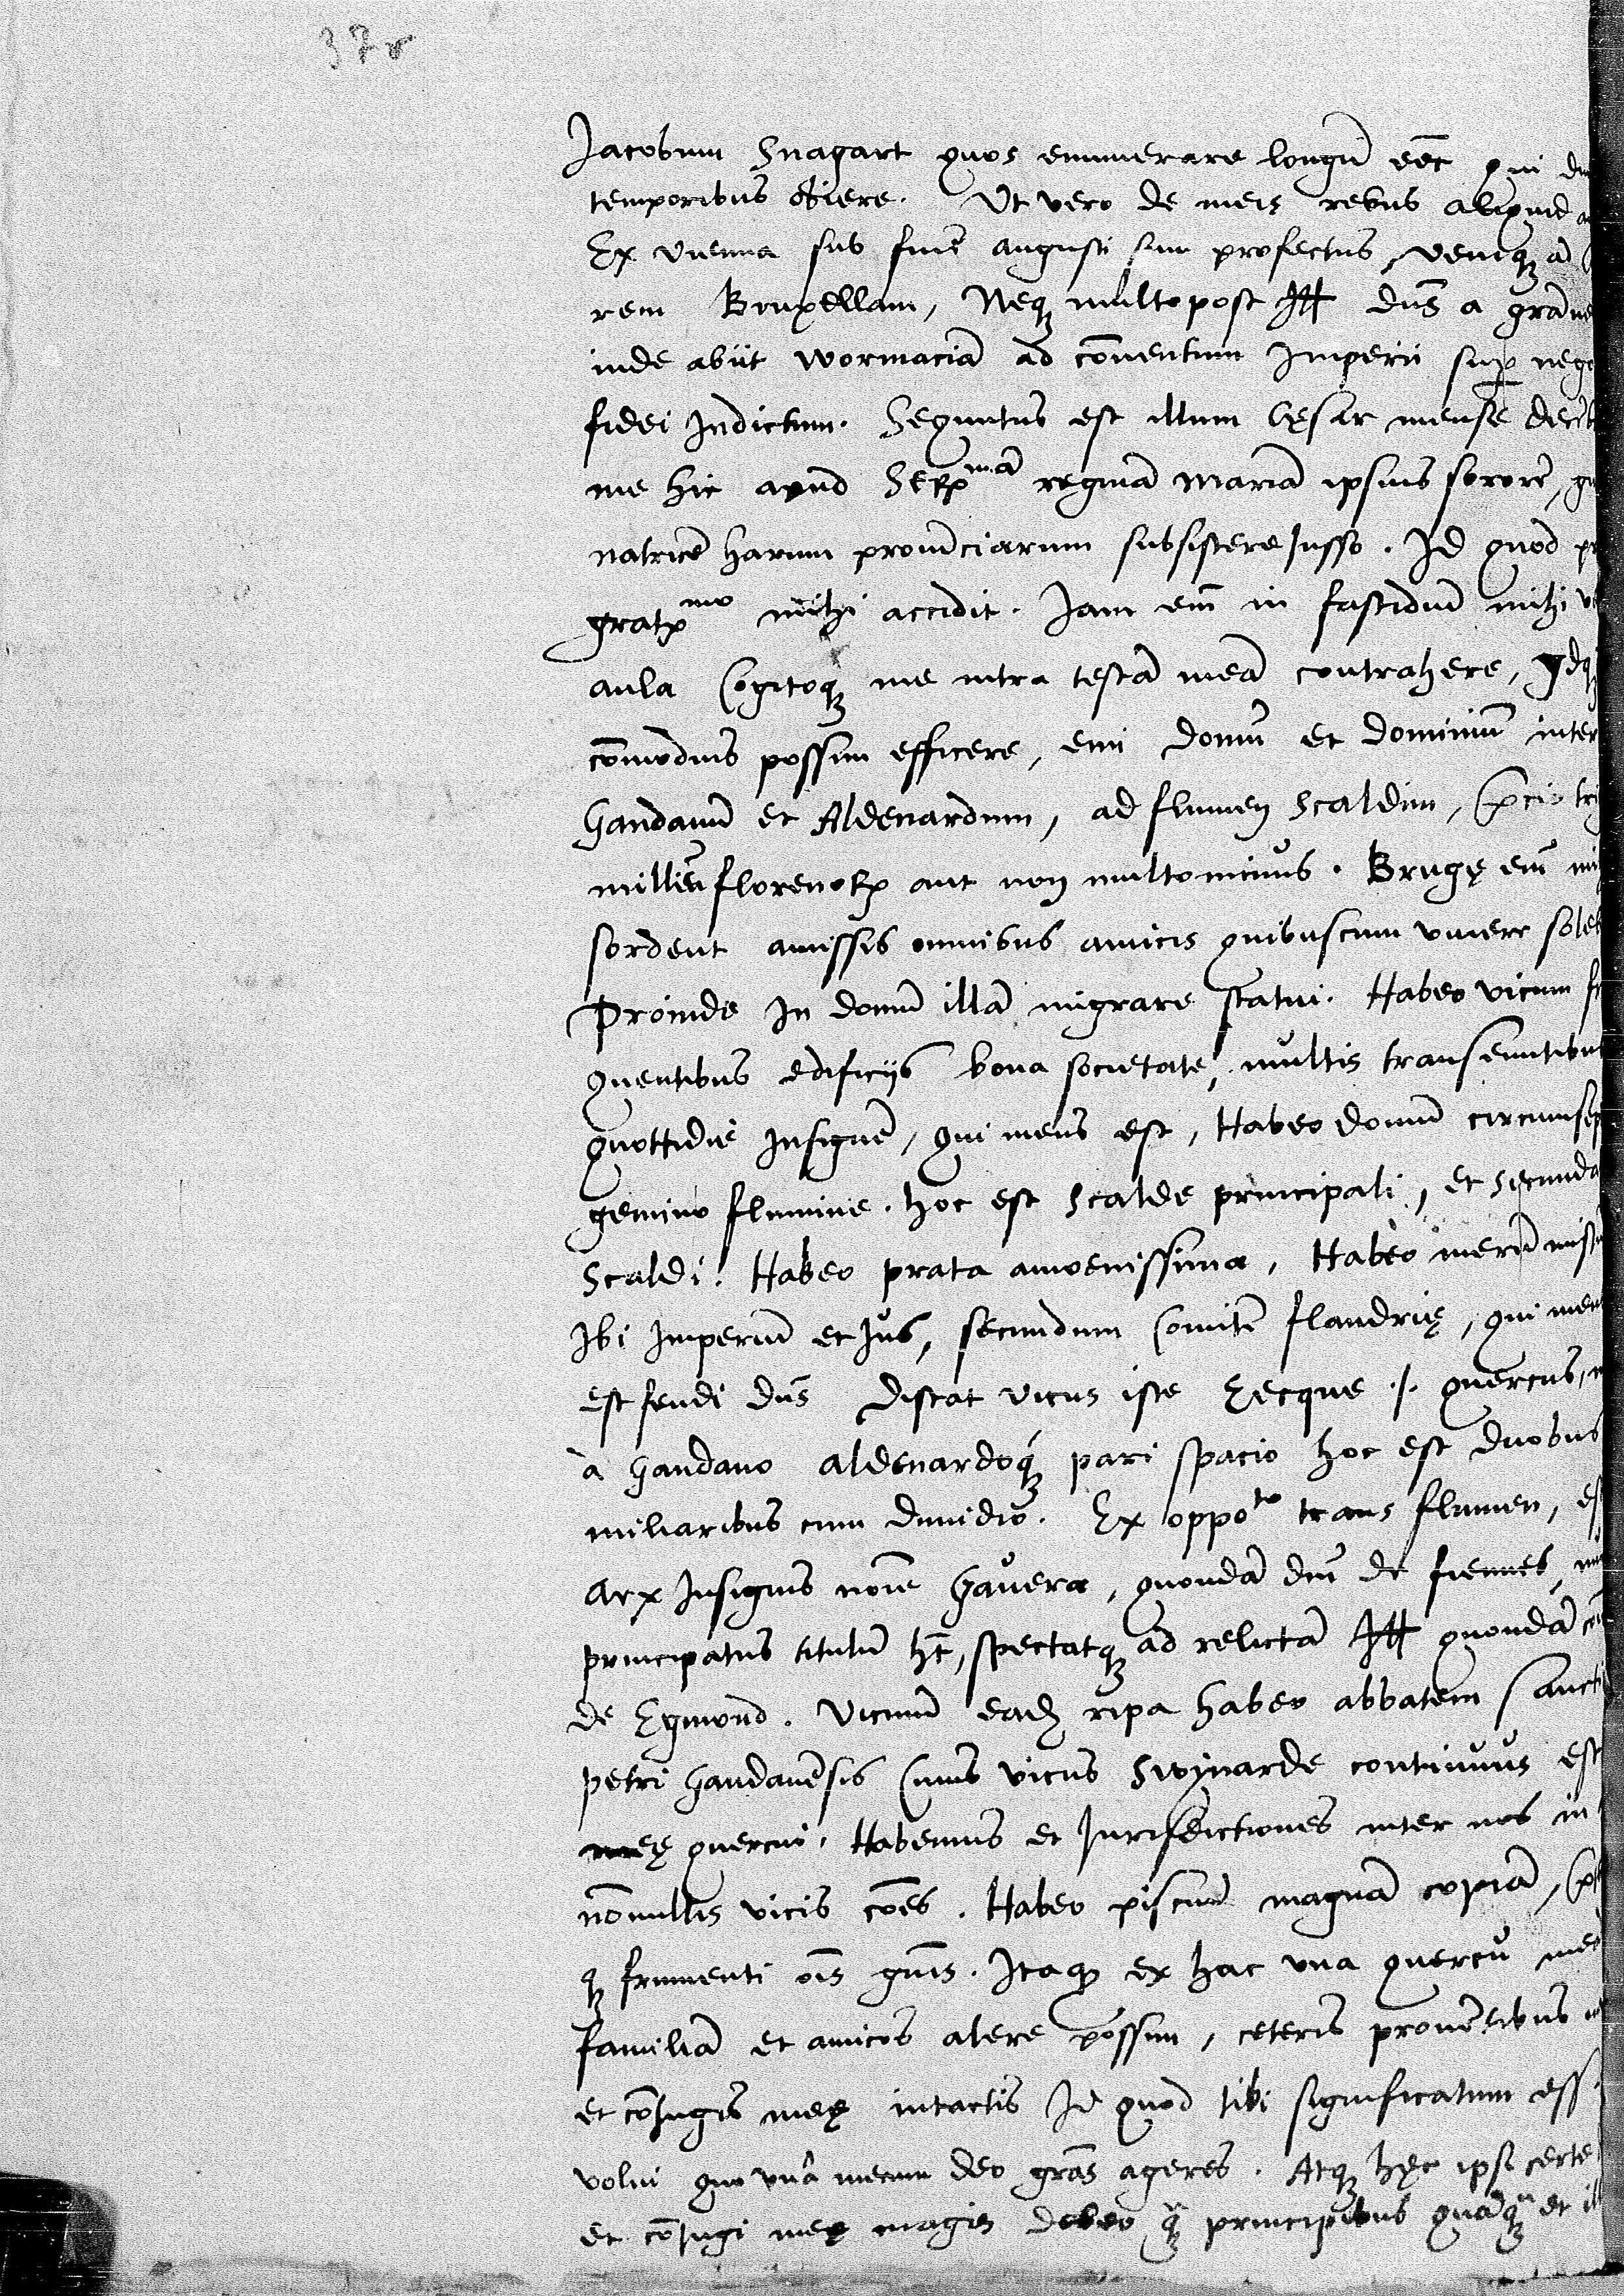 37r
Jacobum Snagart quos enumerare longũ eēt qui
temporibus obiere. Ut vero de meis rebus aliquid
Ex vienna sub finẽ augusti sum profectus, veniq3 ad
rem Bruxellam, Neq3 multo post Ill dn̄s a granve
inde abiit wormaciã ad cõuentum Imperii sup nego
fidei Indictum. Sequutus est illum Cęsar mense decẽb
me hic apud Serᵐã reginã Mariã ipsius sororẽ, gu
natricẽ harum prouĩciarum subsistere Jusso. Id quod
gratᵐᵒ mihi accidit. Jam em̃ in fastidiũ mihi
aula Cogitoq3 me intra testã meã contrahere, Idq3
cõmodius possim efficere, emi domũ et dominiũ inter
Gandauũ et Aldenardum, ad flumen Scaldim, p̃cio
milliũ florenoꝝ aut non multo minus. Brugę em̃
sordent amissis omnibus amicis quibuscum viuere soleb
Proinde In domũ illã migrare statui. Habeo vicum fr
quentibus edificijs bona societate, multis transeuntibus
quottidie Insignẽ, qui meus est, Habeo domũ circumsep
gemino flumine. hoc est Scalde principali, et secunda
Scaldi. Habeo prata amoenissima, Habeo merũ mistũ
Ibi Imperiũ et Jus, secundum Comitẽ flandrię, qui meus
est feudi dn̄s Distat vicus iste Eecque ./. quercus,
à Gandauo aldenardoq3 pari spacio hoc est duobus
miliaribus cum dimidio. Ex oppoᵗᵒ trans flumen, es
Arx Insignis noĩe Gauera, quondã dnĩ de fiennes,
principatus titulũ hẽt, spectatq3 ad relictã Ill quondã
de Egmond. Vicinũ eadẽ ripa habeo abbatem sancti
petri Gandauẽsis Cuius vicus Swynarde continuus est
meę quercui. Habemus et Jurisdictiones inter nos in
nõnullis vicis cões. Habeo pisciũ magnã copiã,
q3 frumenti oĩs gñis. Itaq3 ex hac una quercu meã
familiã et amicos alere possim, ceteris prouẽtibus
et cõiugis meę intactis Id quod tibi significatum esse
volui quo unâ mecum deo grãs ageres. Atq3 hęc ipsi certe
et cõiugi meę magis debeo q̃3 principibus quãq̃3 et